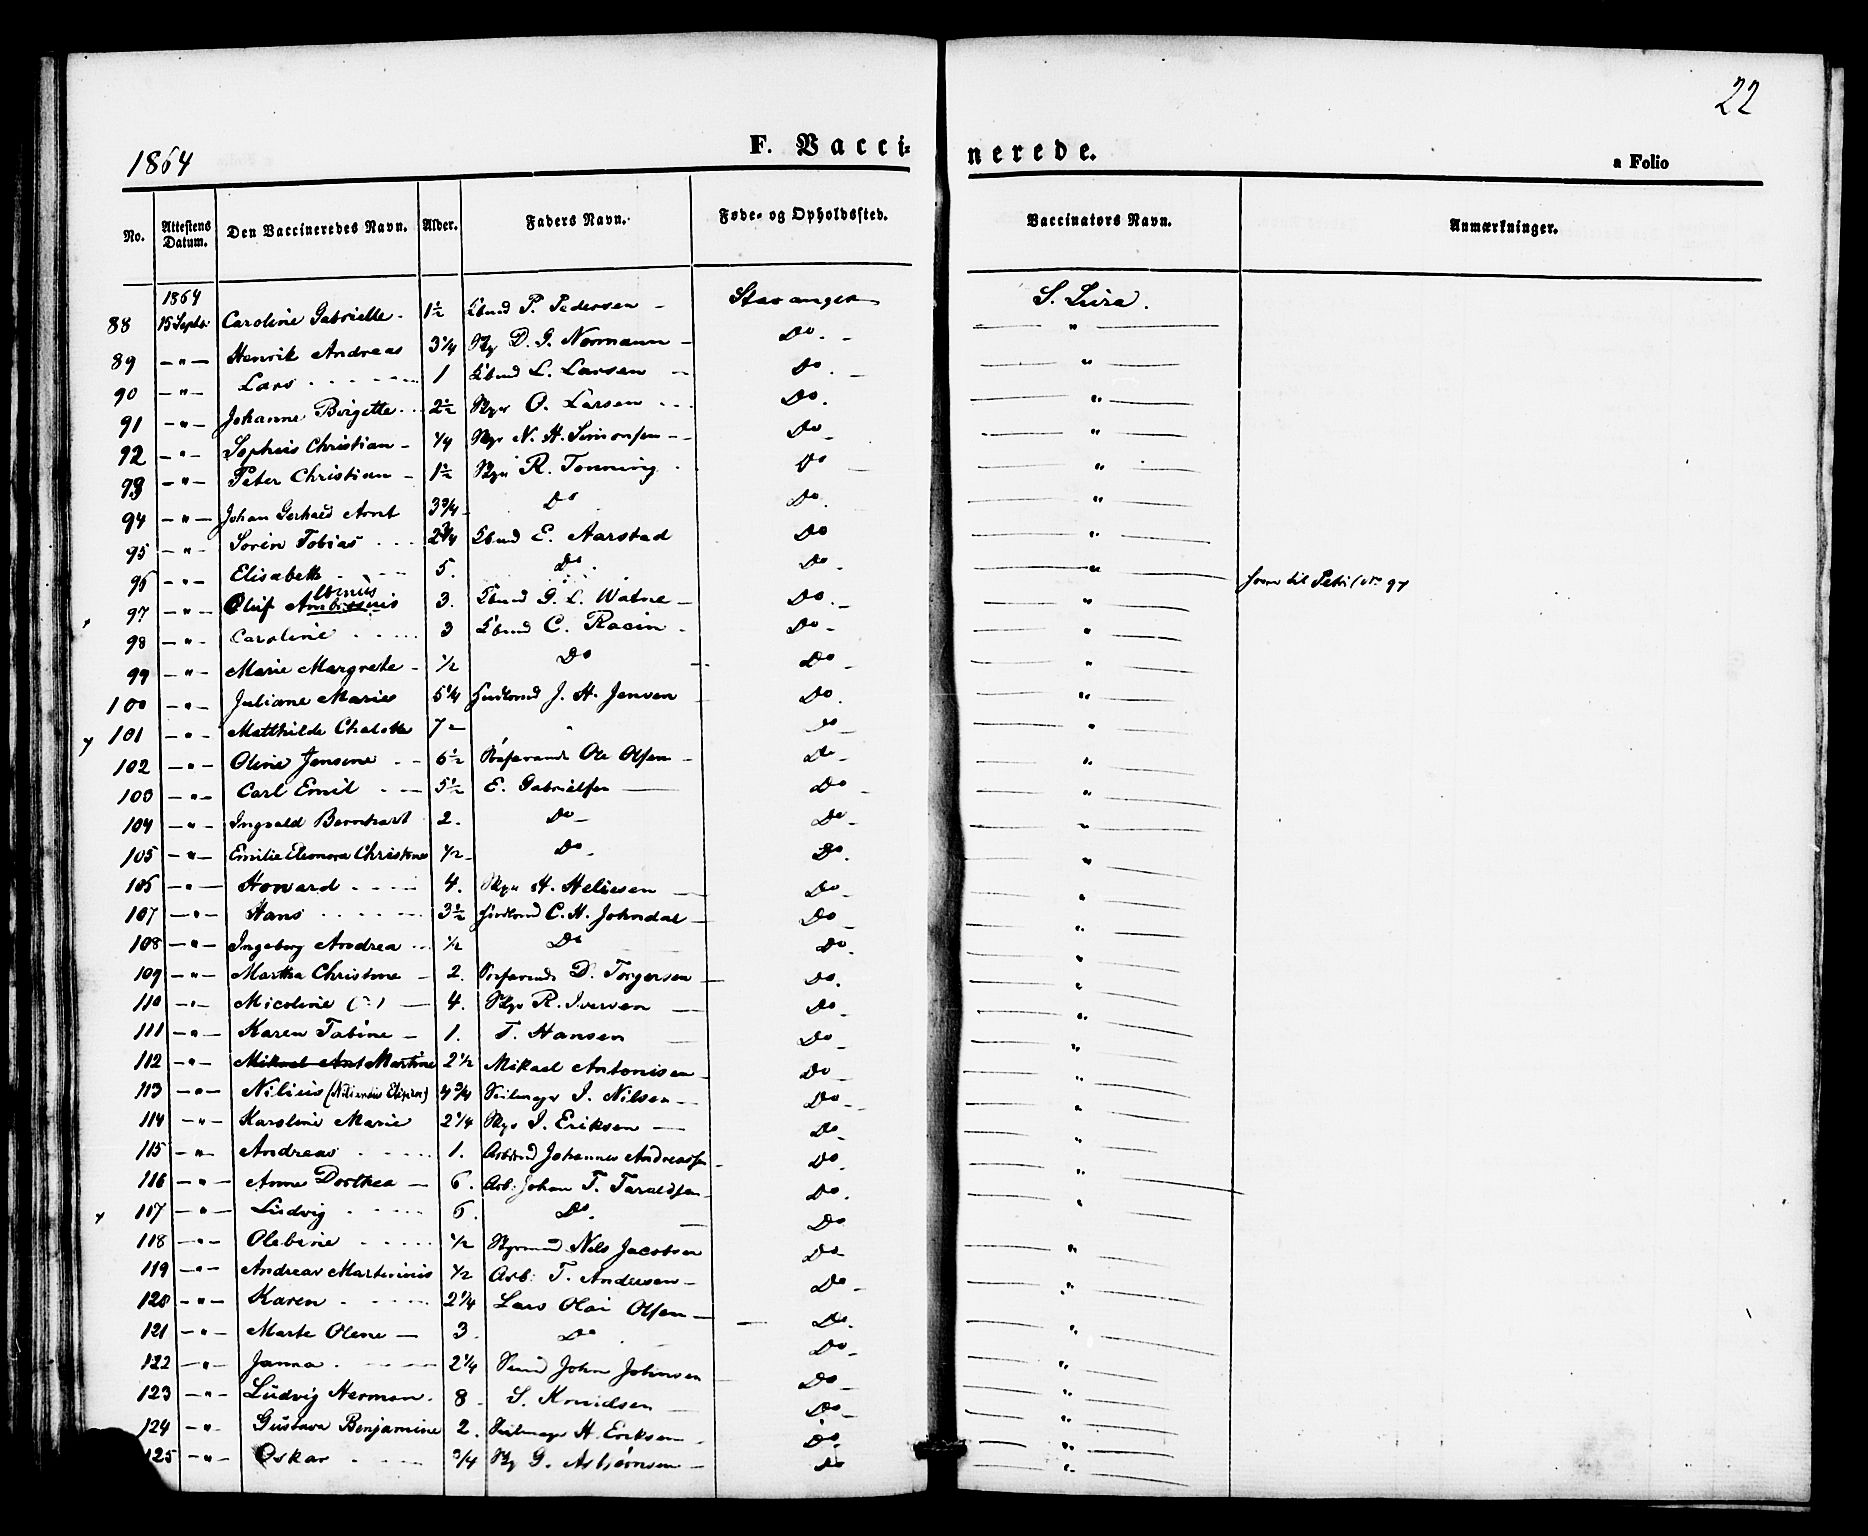 22
1864
F. Vacci-
nerede.
a Folio
No. Attestens Datum. Den Vaccineredes Navn. Alder. Faders Navn. Føde- og Opholdssted. Vaccinators Navn. Anmærkninger.
1864
88 15 Septbr Caroline Gabrielle. 1½ P. Pedersen Stavanger S. Lura.
89 —"— Henrik Andreas 3¼ D. G. Normann Do. "
90 —"— Lars 1 L. Larsen Do. "
91 —"— Johanne Birgette 2½ O. Larsen Do. "
92 —"— Sophus Christian ¼ N. H. Simonsen Do "
93 —"— Peter Christian 1½ R. Tonning Do "
94 —"— Johan Gerhard Arnt 3¾ Do Do. "
95 —"— Soren Tobias 2¾ E. Aarstad Do "
96 —"— Elisabeth 5. Do. Do. "
97 —"— Oluf 3. G. L. Watne Do. "
98 —"— Caroline 3 C. Racin Do "
99 —"— Marie Margrete ½ Do Do "
100 —"— Juliane Marie 5¼ J. H. Jensen Do. "
101 —"— Matthilde Chalotte 7 " Do "
102 —"— Oline Jensine 6½ Ole Olsen Do "
103 —"— Carl Emil 5½ E. Gabrielsen Do "
104 —"— Ingvald Bernhart 2. Do Do "
105 —"— Emilie Eleonora Christine ½ Do Do. "
106 —"— Howard 4. H. Heliesen Do "
107 —"— Hans 3½ C. H. Johndal Do "
108 —"— Ingeborg Andrea ½ Do Do. "
109 —"— Martha Christine 2. D. Torgersen Do. "
110 —"— Micoline 4. R. Iversen Do "
111 —"— Karen Tabine 1. T. Hansen Do "
112 —"— Martine 2½ Mikael Antonisen Do "
113 —"— Nilius 4¾ I. Nilsen Do "
114 —"— Karoline Marie 2¼ I. Eriksen Do "
115 —"— Andreas 1. Johannes Andreassen Do. "
116 —"— Anne Dorthea 6. Arb: Johan T. Taraldsen Do. "
117 —"— Ludvig 6. Do. Do "
118 —"— Olebine ½ Nils Jacobsen Do "
119 —"— Andreas Martinius ½ Arb: T. Andersen Do "
120 —"— Karen 2¼ Lars Olai Olsen Do. "
121 —"— Marte Olene 3. Do Do "
122 —"— Janna 2¼ John Johnsen Do "
123 —"— Ludvig Herman. 8 S. Knudsen Do "
124 —"— Gustava Benjamine 2. H. Eriksen Do. "
125 —"— Oskar ¾ G. Asbjørnsen Do "